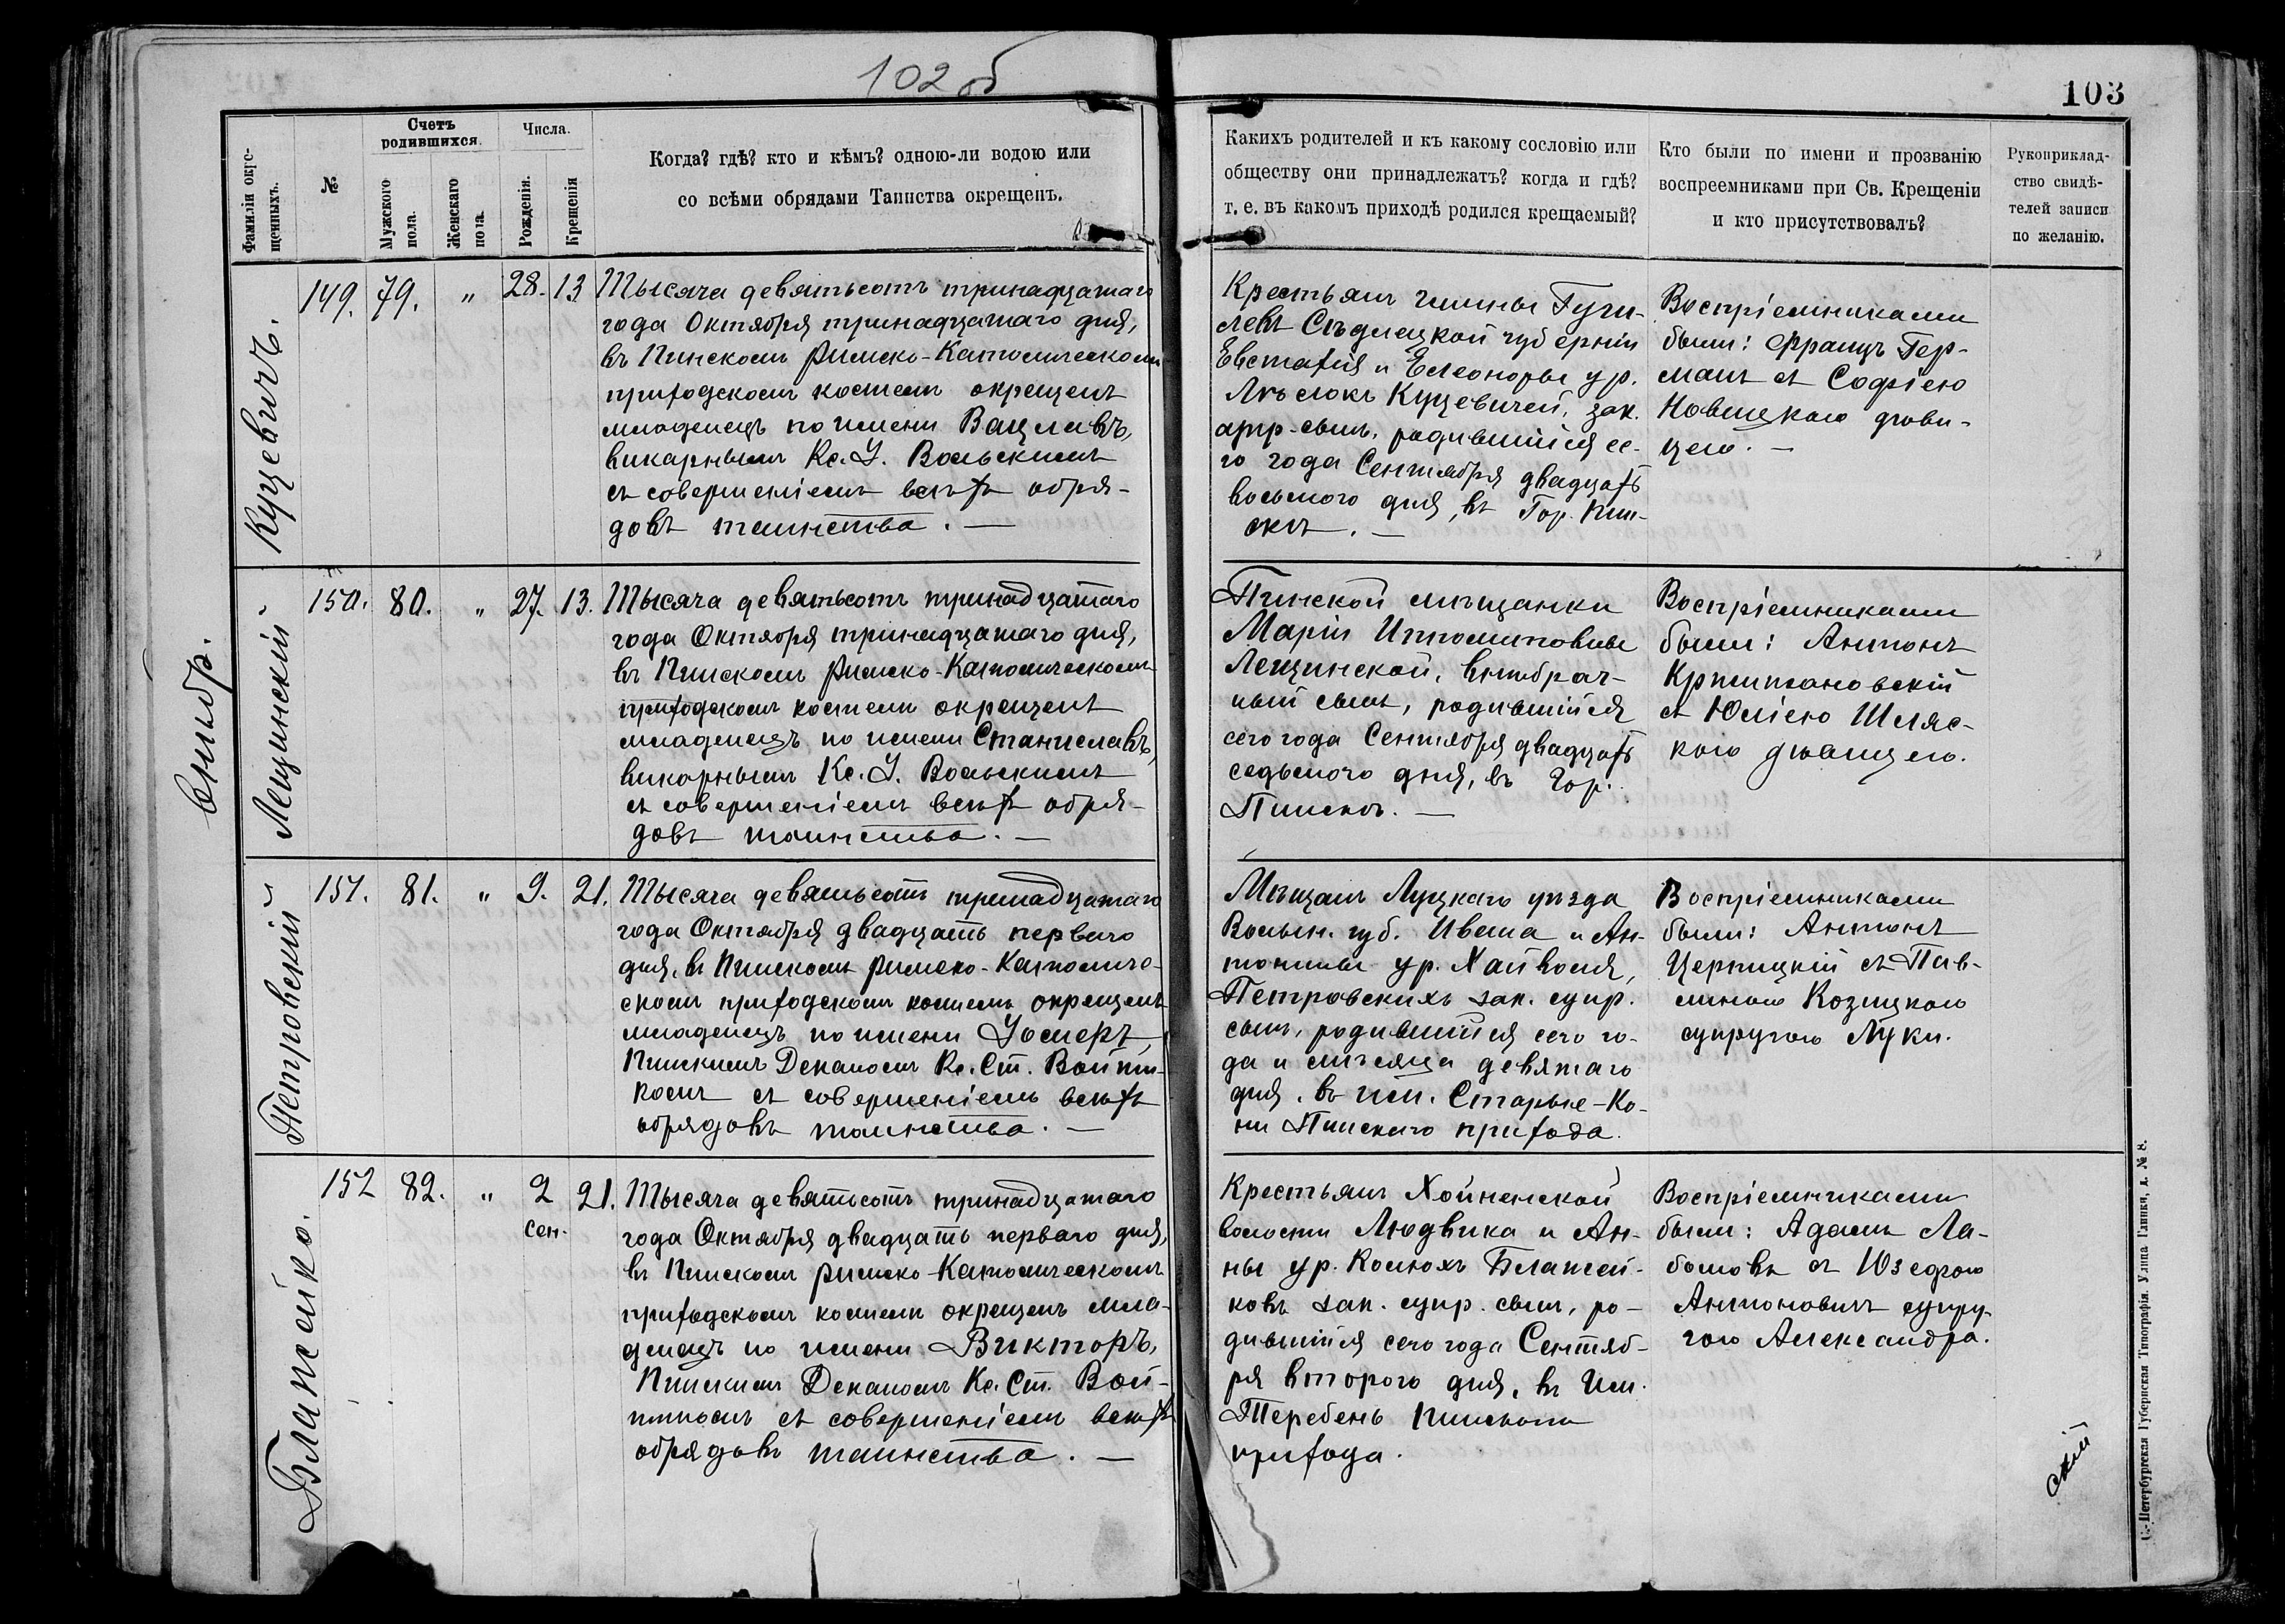 102 об
103
Фамиліи окре-
щенныхъ.
№
Счетъ
родившихся.
Мужского
пола.
Женскаго
пола.
Числа.
Рожденія.
Крещенія
Когда? гдѣ? кто и кѣмъ? одною-ли водою или
со всѣми обрядами Таинства окрещенъ.
Какихъ родителей и къ какому сословію или
обществу они принадлежатъ? когда и гдѣ?
т. е. въ какомъ приходѣ родился крещаемый?
Кто были по имени и прозванію
воспреемниками при Св. Крещеніи
и кто присутствовалъ?
Рукоприклад-
ство свидѣ-
телей записи
по желанію.
Куцевичъ.
149. 79. „ 28. 13
Тысяча девятьсотъ тринадцатаго
года Октября тринадцатаго дня,
въ Пинскомъ Римско-Католическомъ
приходскомъ костелѣ окрещенъ
младенецъ по имени Вацлавъ,
викарнымъ Кс. У. Вольскимъ
съ совершеніемъ всѣхъ обря-
довъ таинства. —
Крестьянъ гмины
Сѣдлецкой губерніи
Евстафія и Елеоноры ур.
Куцевичей, зак.
родившійся се-
го года Сентября двадцать
восьмого дня, въ Гор. Пин-
скѣ. —
Воспріемниками
были: Францъ Гер-
манъ съ Софіею
Новицкою дѣви-
цею. —
Лещинскій
150. 80. „ 27. 13.
Тысяча девятьсотъ тринадцатаго
года Октября тринадцатаго дня,
въ Пинскомъ Римско-Католическомъ
приходскомъ костелѣ окрещенъ
младенецъ по имени Станиславъ,
викарнымъ Кс. У. Вольскимъ
съ совершеніемъ всѣхъ обря-
довъ таинства. —
Пинской мѣщанки
Маріи Ипполитовны
Лещинской, внѣбрач-
ный сынъ, родившійся
сего года Сентября двадцать
седьмого дня, въ Гор.
Пинскѣ. —
Воспріемниками
были: Антонъ
Кржижановскій
съ Юліею Шляс-
кою дѣвицею.
Петровскій
151. 81. „ 9. 21.
Тысяча девятьсотъ тринадцатаго
года Октября двадцать перваго
дня, въ Пинскомъ Римско-Католиче-
скомъ приходскомъ костелѣ окрещенъ
младенецъ по имени
Пинскимъ Деканомъ Кс. Ст. Войт-
комъ съ совершеніемъ всѣхъ
обрядовъ таинства. —
Мѣщанъ Луцкаго уѣзда
Волын. губ. Ивана и Ан-
тонины ур.
Петровскихъ зак. супр.
сынъ, родившійся сего го-
да и мѣсяца девятаго
дня, въ им. Старые-Ко-
ни Пинскаго прихода.
Воспріемниками
были: Антонъ
Церпицкій съ Пав-
линою Козицкою
супругою Луки.
Блажейко.
152 82. „ 2 21.
сен.
Тысяча девятьсотъ тринадцатаго
года Октября двадцать перваго дня,
въ Пинскомъ Римско-Католическомъ
приходскомъ костелѣ окрещенъ мла-
денецъ по имени Викторъ,
Пинскимъ Деканомъ Кс. Ст. Вой-
ткомъ съ совершеніемъ всѣхъ
обрядовъ таинства. —
Крестьянъ Хойненской
волости Людвика и Ан-
ны ур. Блажей-
ковъ зак. супр. сынъ, ро-
дившійся сего года Сентяб-
ря второго дня, въ Им.
Теребень Пинскаго
прихода.
Воспріемниками
были: Адамъ Ла-
бановъ съ Юзефою
Антоновичъ супру-
гою Александра.
скій
С.-Петербургская Губернская Типографія. Улица Глинки, д. № 8.